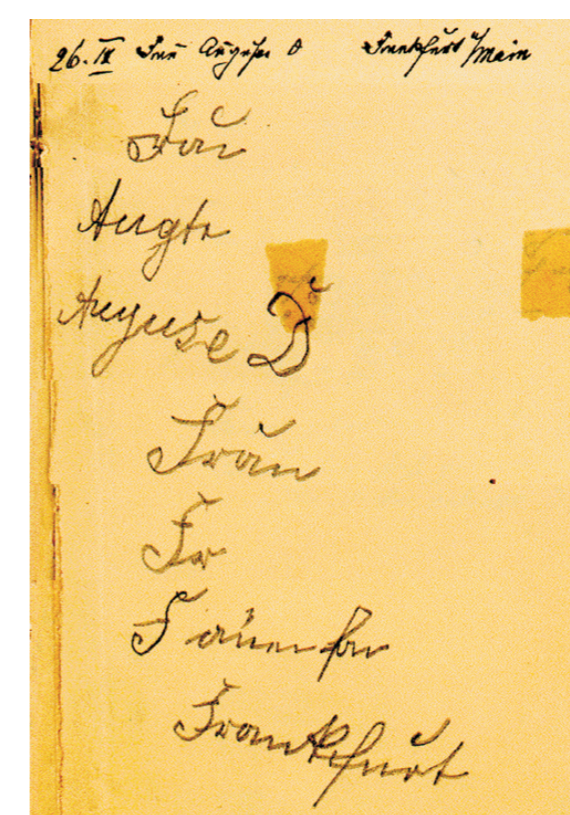 26. IX Frau Auguse D Frankfurt a/Main
Frau
Augte
Auguse D
Frän
Fr
Frankfurt